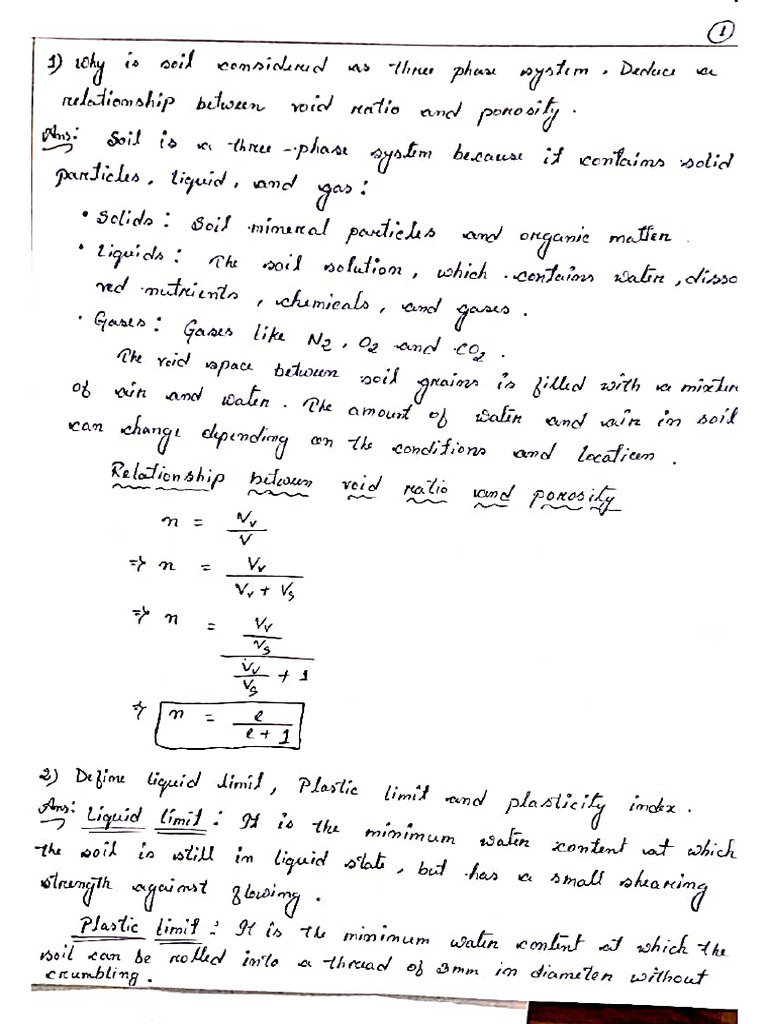 1
1) Why is soil considered as three phase system. Deduce a
relationship between void ratio and porosity.
Ans: Soil is a three-phase system because it contains solid
particles, liquid, and gas:
• Solids: Soil mineral particles and organic matter.
• Liquids: The soil solution, which contains water, disso
ved nutrients, chemicals, and gases.
• Gases: Gases like N2, O2 and CO2.
The void space between soil grains is filled with a mixture
of air and water. The amount of water and air in soil
can change depending on the conditions and location.
Relationship between void ratio and porosity
n = Vv / V
⇒ n = Vv / (Vv + Vs)
⇒ n = (Vv / Vs) / (Vv / Vs + 1)
⇒ n = e / (e + 1)
2) Define liquid limit, Plastic limit and plasticity index.
Ans: Liquid limit: It is the minimum water content at which
the soil is still in liquid state, but has a small shearing
strength against flowing.
Plastic limit: It is the minimum water content at which the
soil can be rolled into a thread of 3mm in diameter without
crumbling.